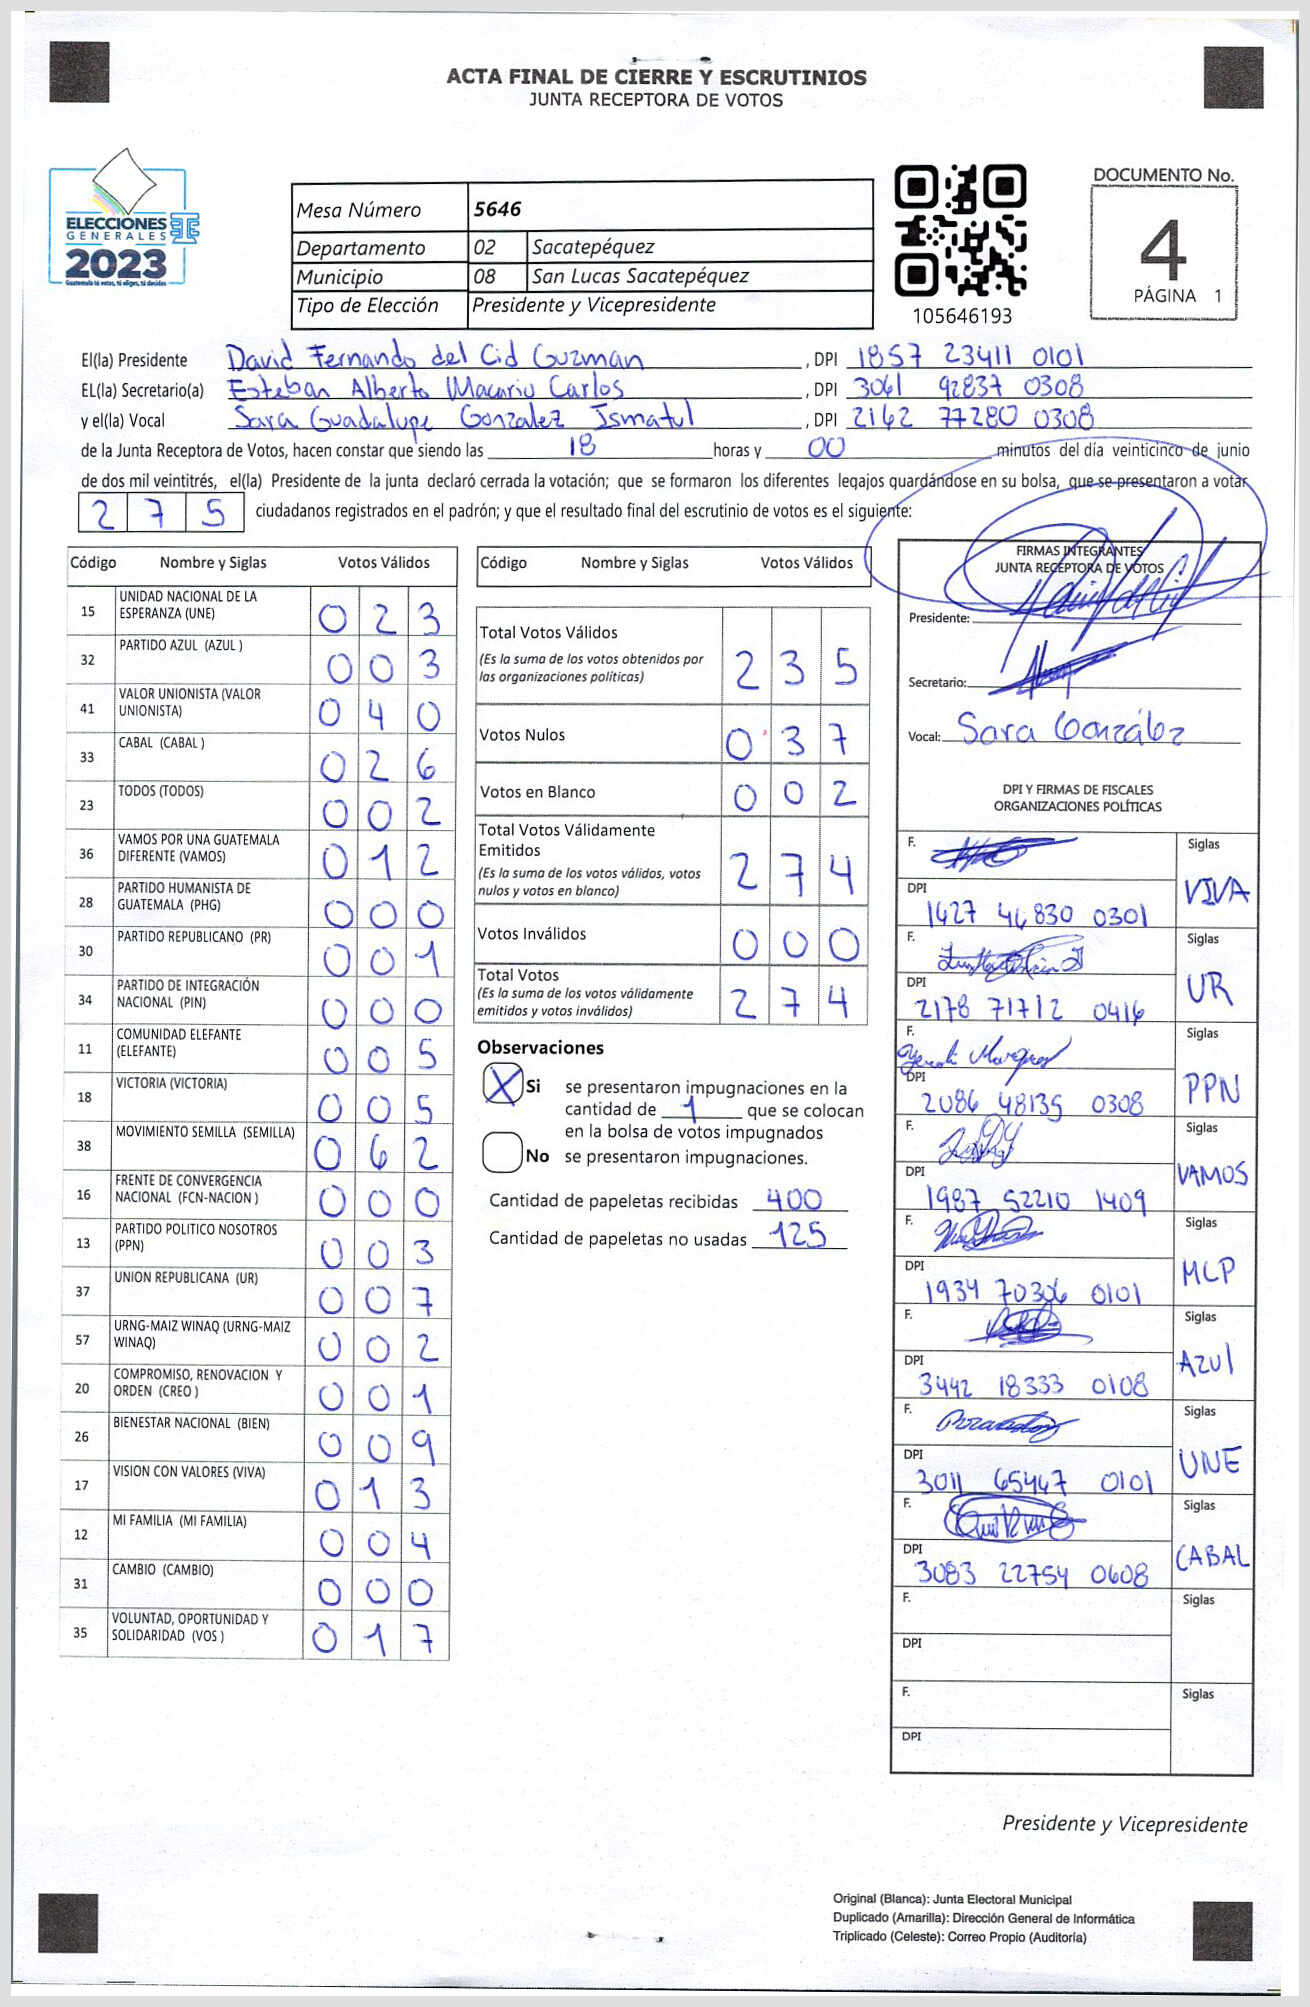 ACTA FINAL DE CIERRE Y ESCRUTINIOS
JUNTA RECEPTORA DE VOTOS
ELECCIONES
GENERALES
2023
Guatemala tú votas, tú eliges, tú decides
Mesa Número 5646
Departamento 02 Sacatepéquez
Municipio 08 San Lucas Sacatepéquez
Tipo de Elección Presidente y Vicepresidente
105646193
DOCUMENTO No.
4
PÁGINA 1
El(la) Presidente David Fernando del Cid Guzman, DPI 1857 23411 0101
EL(la) Secretario(a) Esteban Alberto Macario Carlos, DPI 3061 92837 0308
y el(la) Vocal Sara Guadalupe Gonzalez Ismatul, DPI 2162 77280 0308
de la Junta Receptora de Votos, hacen constar que siendo las 18 horas y 00 minutos del día veinticinco de junio
de dos mil veintitrés, el(la) Presidente de la junta declaró cerrada la votación; que se formaron los diferentes legajos guardándose en su bolsa, que se presentaron a votar
2 7 5 ciudadanos registrados en el padrón; y que el resultado final del escrutinio de votos es el siguiente:
Código Nombre y Siglas Votos Válidos
15 UNIDAD NACIONAL DE LA ESPERANZA (UNE) 0 2 3
32 PARTIDO AZUL (AZUL ) 0 0 3
41 VALOR UNIONISTA (VALOR UNIONISTA) 0 4 0
33 CABAL (CABAL ) 0 2 6
23 TODOS (TODOS) 0 0 2
36 VAMOS POR UNA GUATEMALA DIFERENTE (VAMOS) 0 1 2
28 PARTIDO HUMANISTA DE GUATEMALA (PHG) 0 0 0
30 PARTIDO REPUBLICANO (PR) 0 0 1
34 PARTIDO DE INTEGRACIÓN NACIONAL (PIN) 0 0 0
11 COMUNIDAD ELEFANTE (ELEFANTE) 0 0 5
18 VICTORIA (VICTORIA) 0 0 5
38 MOVIMIENTO SEMILLA (SEMILLA) 0 6 2
16 FRENTE DE CONVERGENCIA NACIONAL (FCN-NACION ) 0 0 0
13 PARTIDO POLITICO NOSOTROS (PPN) 0 0 3
37 UNION REPUBLICANA (UR) 0 0 7
57 URNG-MAIZ WINAQ (URNG-MAIZ WINAQ) 0 0 2
20 COMPROMISO, RENOVACION Y ORDEN (CREO ) 0 0 1
26 BIENESTAR NACIONAL (BIEN) 0 0 9
17 VISION CON VALORES (VIVA) 0 1 3
12 MI FAMILIA (MI FAMILIA) 0 0 4
31 CAMBIO (CAMBIO) 0 0 0
35 VOLUNTAD, OPORTUNIDAD Y SOLIDARIDAD (VOS ) 0 1 7
Código Nombre y Siglas Votos Válidos
Total Votos Válidos
(Es la suma de los votos obtenidos por
las organizaciones políticas) 2 3 5
Votos Nulos 0 3 7
Votos en Blanco 0 0 2
Total Votos Válidamente
Emitidos
(Es la suma de los votos válidos, votos
nulos y votos en blanco) 2 7 4
Votos Inválidos 0 0 0
Total Votos
(Es la suma de los votos válidamente
emitidos y votos inválidos) 2 7 4
Observaciones
X Si se presentaron impugnaciones en la
cantidad de 1 que se colocan
en la bolsa de votos impugnados
No se presentaron impugnaciones.
Cantidad de papeletas recibidas 400
Cantidad de papeletas no usadas 125
FIRMAS INTEGRANTES
JUNTA RECEPTORA DE VOTOS
Presidente:
Secretario:
Vocal: Sara González
DPI Y FIRMAS DE FISCALES
ORGANIZACIONES POLÍTICAS
F. Siglas VIVA
DPI 1427 46830 0301
F. Siglas UR
DPI 2178 71712 0416
F. Siglas PPN
DPI 2086 48135 0308
F. Siglas VAMOS
DPI 1987 52210 1409
F. Siglas MLP
DPI 1934 70306 0101
F. Siglas AZUl
DPI 3442 18333 0108
F. Siglas UNE
DPI 3011 65447 0101
F. Siglas CABAL
DPI 3083 22754 0608
F. Siglas
DPI
F. Siglas
DPI
Presidente y Vicepresidente
Original (Blanca): Junta Electoral Municipal
Duplicado (Amarilla): Dirección General de Informática
Triplicado (Celeste): Correo Propio (Auditoría)